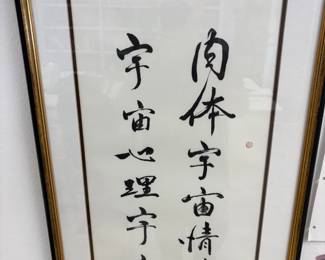 肉体宇宙情
宇宙心理宇